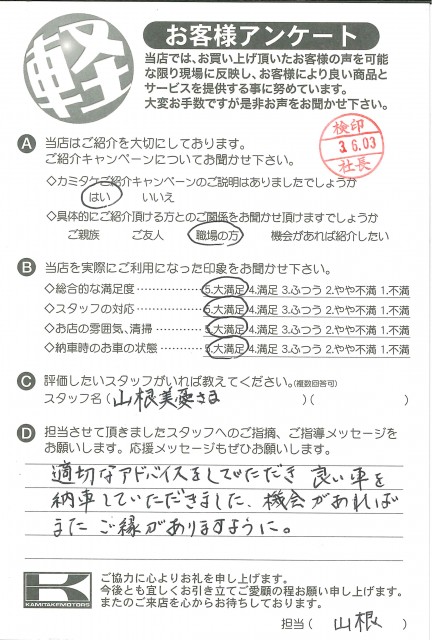 軽
お客様アンケート
当店では、お買い上げ頂いたお客様の声を可能
な限り現場に反映し、お客様により良い商品と
サービスを提供する事に努めています。
大変お手数ですが是非お声をお聞かせ下さい。
検印
3.6.03
社長
A 当店はご紹介を大切にしております。
ご紹介キャンペーンについてお聞かせ下さい。
◇カミタケご紹介キャンペーンのご説明はありましたでしょうか
はい いいえ
◇具体的にご紹介頂ける方とのご関係をお聞かせ頂けますでしょうか
ご親族 ご友人 職場の方 機会があれば紹介したい
B 当店を実際にご利用になった印象をお聞かせ下さい。
◇総合的な満足度 5.大満足 4.満足 3.ふつう 2.やや不満 1.不満
◇スタッフの対応 5.大満足 4.満足 3.ふつう 2.やや不満 1.不満
◇お店の雰囲気、清掃 5.大満足 4.満足 3.ふつう 2.やや不満 1.不満
◇納車時のお車の状態 5.大満足 4.満足 3.ふつう 2.やや不満 1.不満
C 評価したいスタッフがいれば教えてください。(複数回答可)
スタッフ名 ( 山根美憂さま )( )
D 担当させて頂きましたスタッフへのご指摘、ご指導メッセージを
お願いします。応援メッセージもぜひお願いします。
適切なアドバイスをしていただき 良い車を
納車していただきました、機会があれば
また ご縁がありますように。
K
KAMITAKEMOTORS
ご協力に心よりお礼を申し上げます。
今後とも宜しくお引き立てご愛顧の程お願い申し上げます。
またのご来店を心からお待ちしております。
担当 ( 山根 )